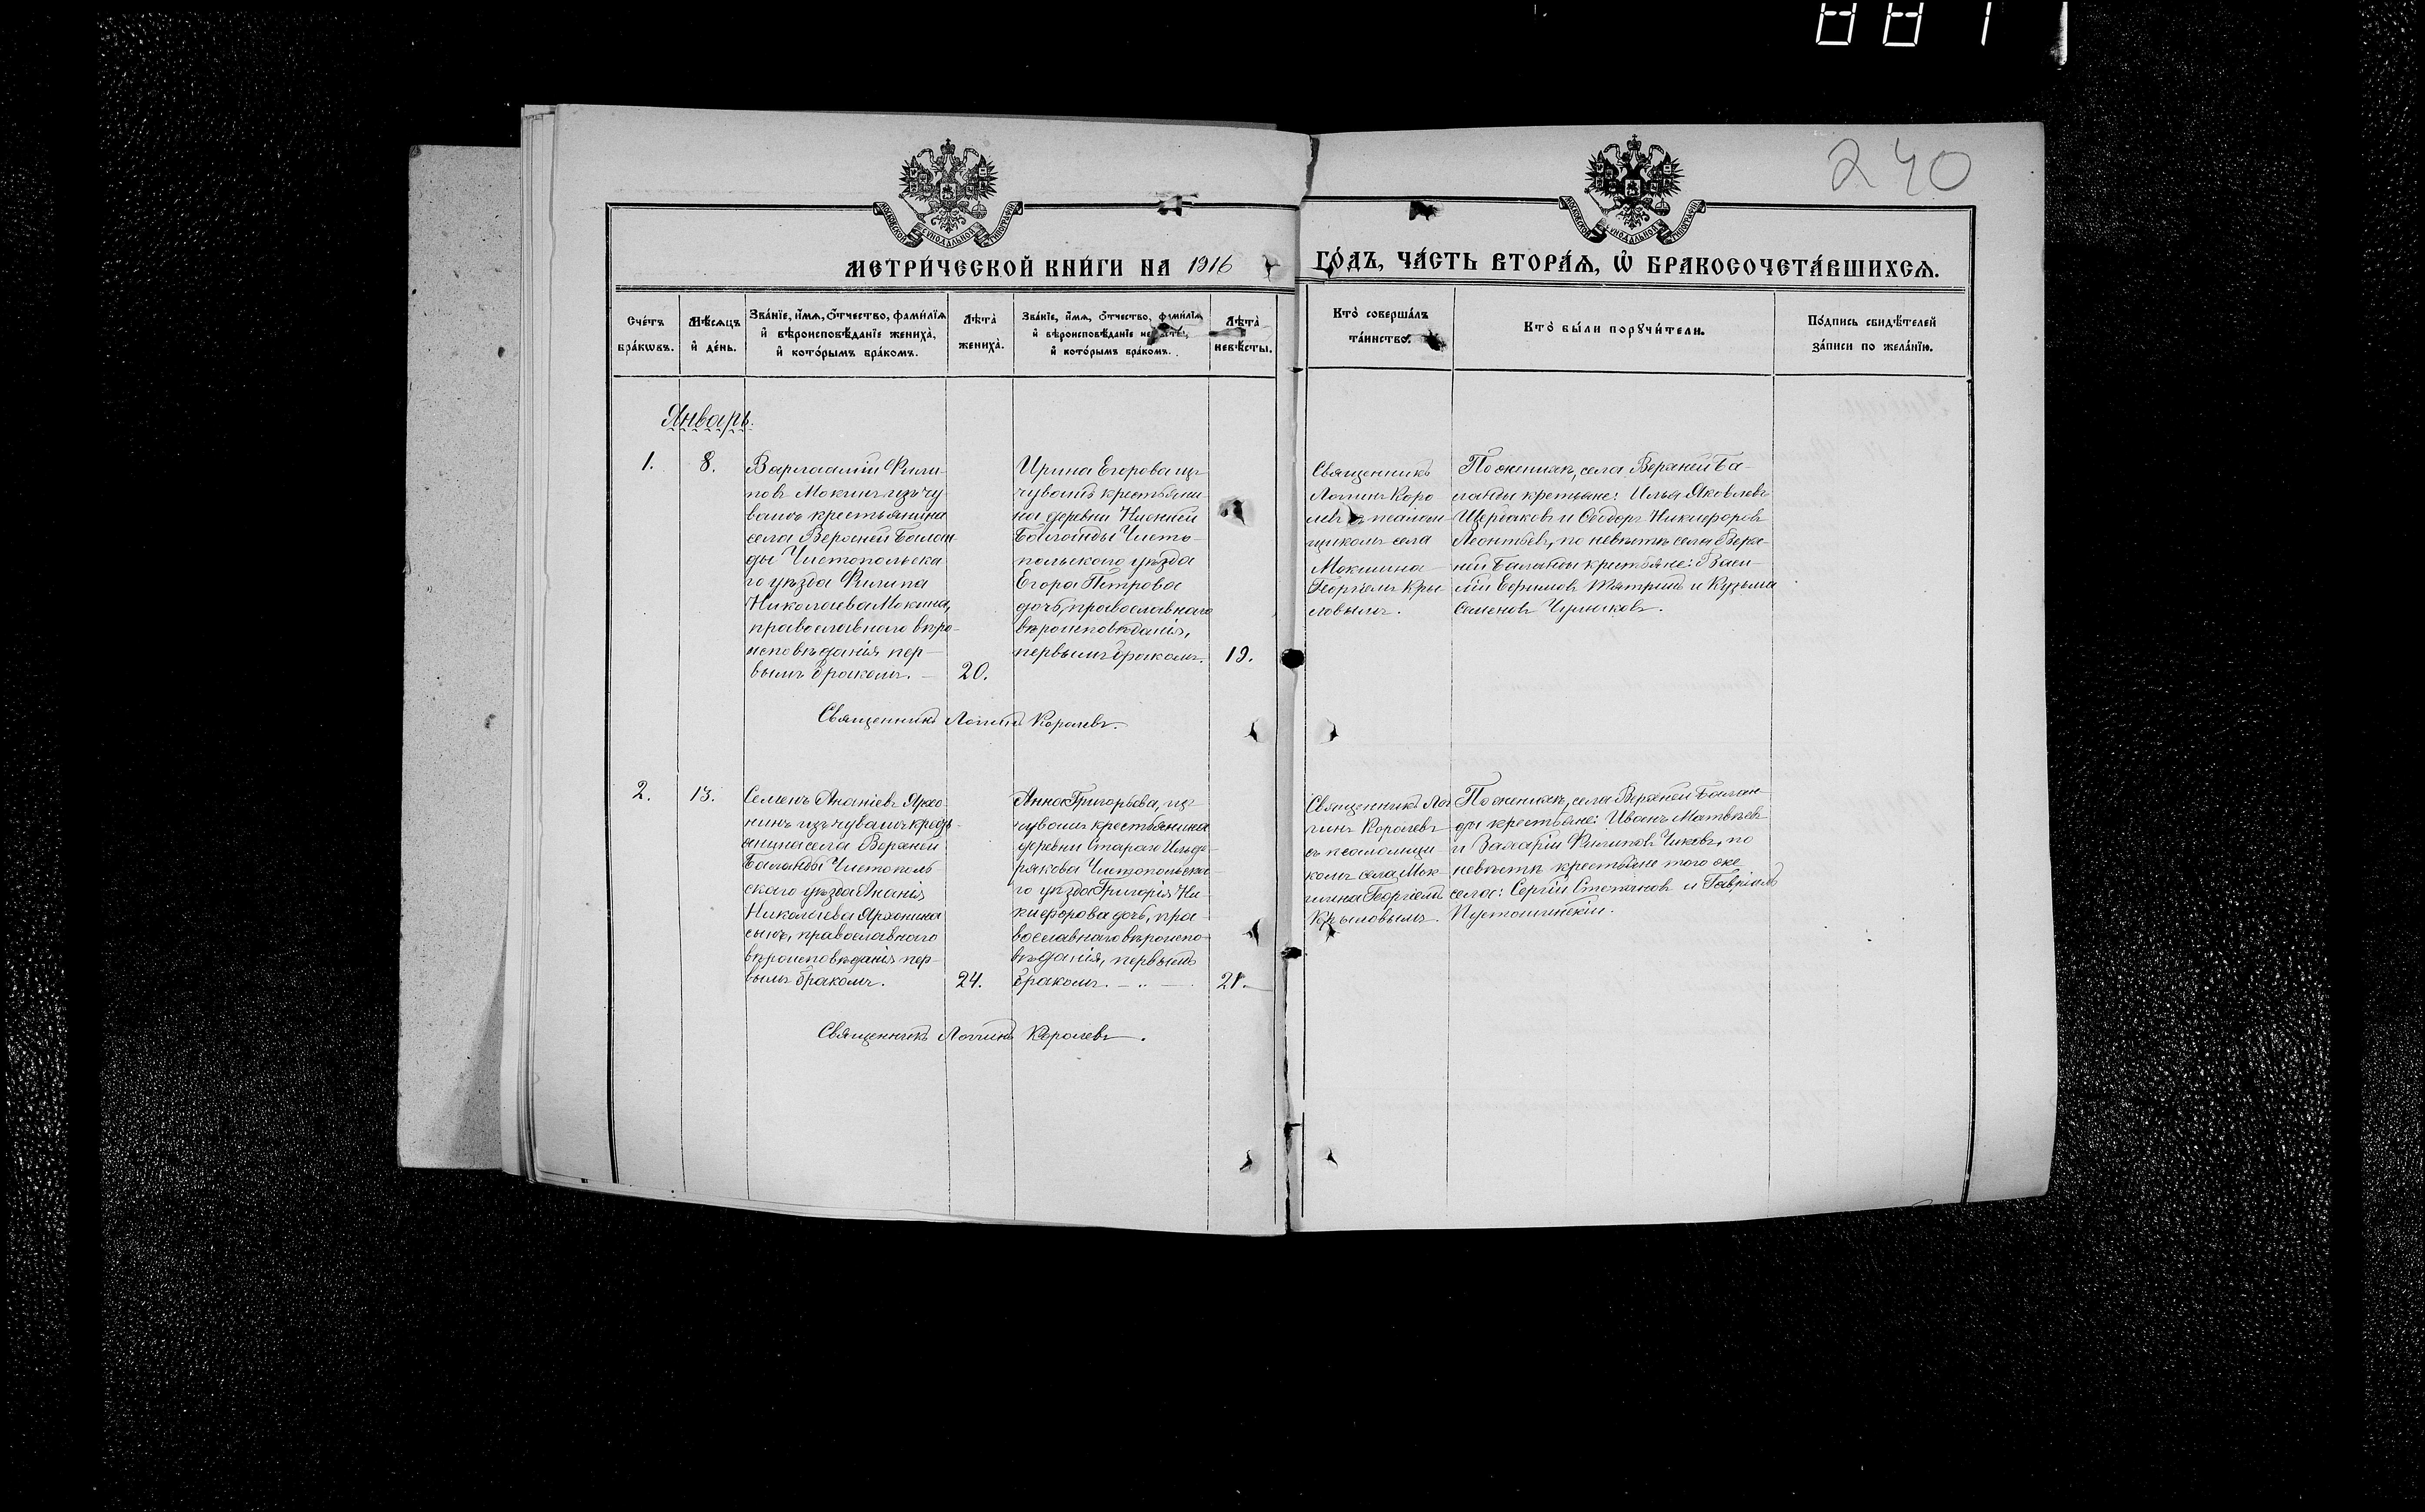 240
МОСКОВСКОЙ СѴНОДАЛЬНОЙ ТИПОГРАФІИ
МОСКОВСКОЙ СѴНОДАЛЬНОЙ ТИПОГРАФІИ
МЕТРИ́ЧЕСКОЙ КНИ́ГИ НА 1916 ГО́ДЪ, ЧА́СТЬ ВТОРА́Ѧ, Ѡ҆ БРАКОСОЧЕТА́ВШИХСѦ.
Сче́тъ
бра́кωвъ.
Мѣ́сѧцъ
и҆ де́нь.
Зва́нїе, и҆́мѧ, о҆́тчество, фами́лїѧ
и҆ вѣроисповѣ́данїе жениха̀,
и҆ кото́рымъ бра́комъ.
Лѣта̀
жениха̀.
Зва́нїе, и҆́мѧ, о҆́тчество, фами́лїѧ
и҆ вѣроисповѣ́данїе
и҆ кото́рымъ бра́комъ.
Лѣта̀
невѣ́сты.
Кто̀ соверша́лъ
та́инство.
Кто̀ бы́ли порꙋчи́тели.
По́дпись свидѣ́телей
за́писи по жела́нїю.
Январь.
1.
8.
Варлаамій Фили-
повъ Мокинъ изъ чу-
вашъ крестьянина
села Верхней Балан-
ды Чистопольска
го уѣзда Филипа
Николаева Мокина,
православнаго вѣро-
исповѣданія пер-
вымъ бракомъ. —
20.
Ирина Егорова изъ
чувашъ крестьяни-
на деревни Нижней
Баланды Чисто-
польскаго уѣзда
Егора Петрова
дочь, православнаго
вѣроисповѣданія,
первымъ бракомъ.
19.
Священникъ
Логинъ Коро
левъ съ псалом
щикомъ села
Мокшина
Георгіемъ Кры
ловымъ.
По женихѣ, села Верхней Ба-
ланды кретьяне: Илья Яковлевъ
Щербаковъ и Ѳеодоръ Никифоровъ
Леонтьевъ, по невѣстѣ села Верх-
ней Баланды крестьяне: Васи
лій Ефимовъ и Кузьма
Семеновъ
Священникъ Логинъ Королевъ.
2.
13.
Семенъ Ананіевъ Архо-
нинъ изъ чувашъ кресть-
янина села Верхней
Баланды Чистополь
скаго уѣзда Ананія
Николаева Архонина
сынъ, православнаго
вѣроисповѣданія пер-
вымъ бракомъ.
24.
Анна Григорьева, изъ
чувашъ крестьянина
деревни Стараго Ильде-
рякова Чистопольска-
го уѣзда Григорія Ни-
кифорова дочь, пра-
вославнаго вѣроиспо-
вѣданія, первымъ
бракомъ. — „ —
21.
Священникъ Ло
гинъ Королевъ
съ псаломщи
комъ села Мок-
шина Георгіемъ
Крыловымъ.
По женихѣ, села Верхней Балан-
ды крестьяне: Иванъ Матвѣевъ
и Захарій Филиповъ Чиковъ, по
невѣстѣ крестьяне того же
села: Сергій Степановъ и Гавріилъ
Пустошинскій.
Священникъ Логинъ Королевъ.